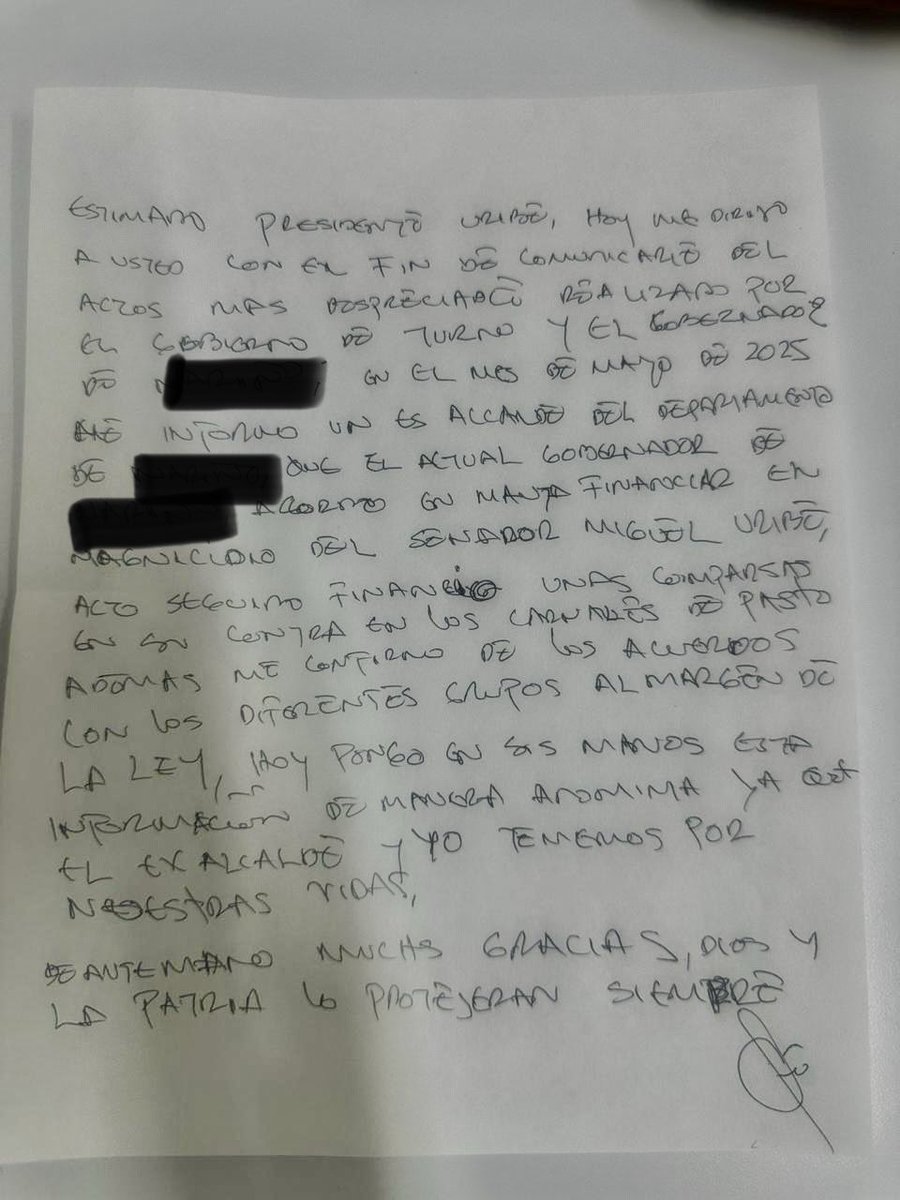 ESTIMADO PRESIDENTE URIBE, HOY ME DIRIJO
A USTED CON EL FIN DE COMUNICARLE DEL
ACTOS MAS DESPRECIABLE REALIZADO POR
EL GOBIERNO DE TURNO Y EL GOBERNADOR
DE EN EL MES DE MAYO DE 2025
ME INFORMO UN ES ALCALDE DEL DEPARTAMENTO
DE QUE EL ACTUAL GOBERNADOR DE
ACORDO EN MANTA FINANCIAR EN
MAGNICIDIO DEL SENADOR MIGUEL URIBE,
ACTO SEGUIDO FINANCIO UNAS COMPARSAS
EN SU CONTRA EN LOS CARNAVALES DE PASTO
ADEMAS ME CONFIRMO DE LOS ACUERDOS
CON LOS DIFERENTES GRUPOS AL MARGEN DE
LA LEY, HOY PONGO EN SUS MANOS ESTA
INFORMACION DE MANERA ANONIMA YA QUE
EL EX ALCALDE Y YO TEMEMOS POR
NUESTRAS VIDAS,
DE ANTEMANO MUCHS GRACIAS, DIOS Y
LA PATRIA LO PROTEJERAN SIEMPRE